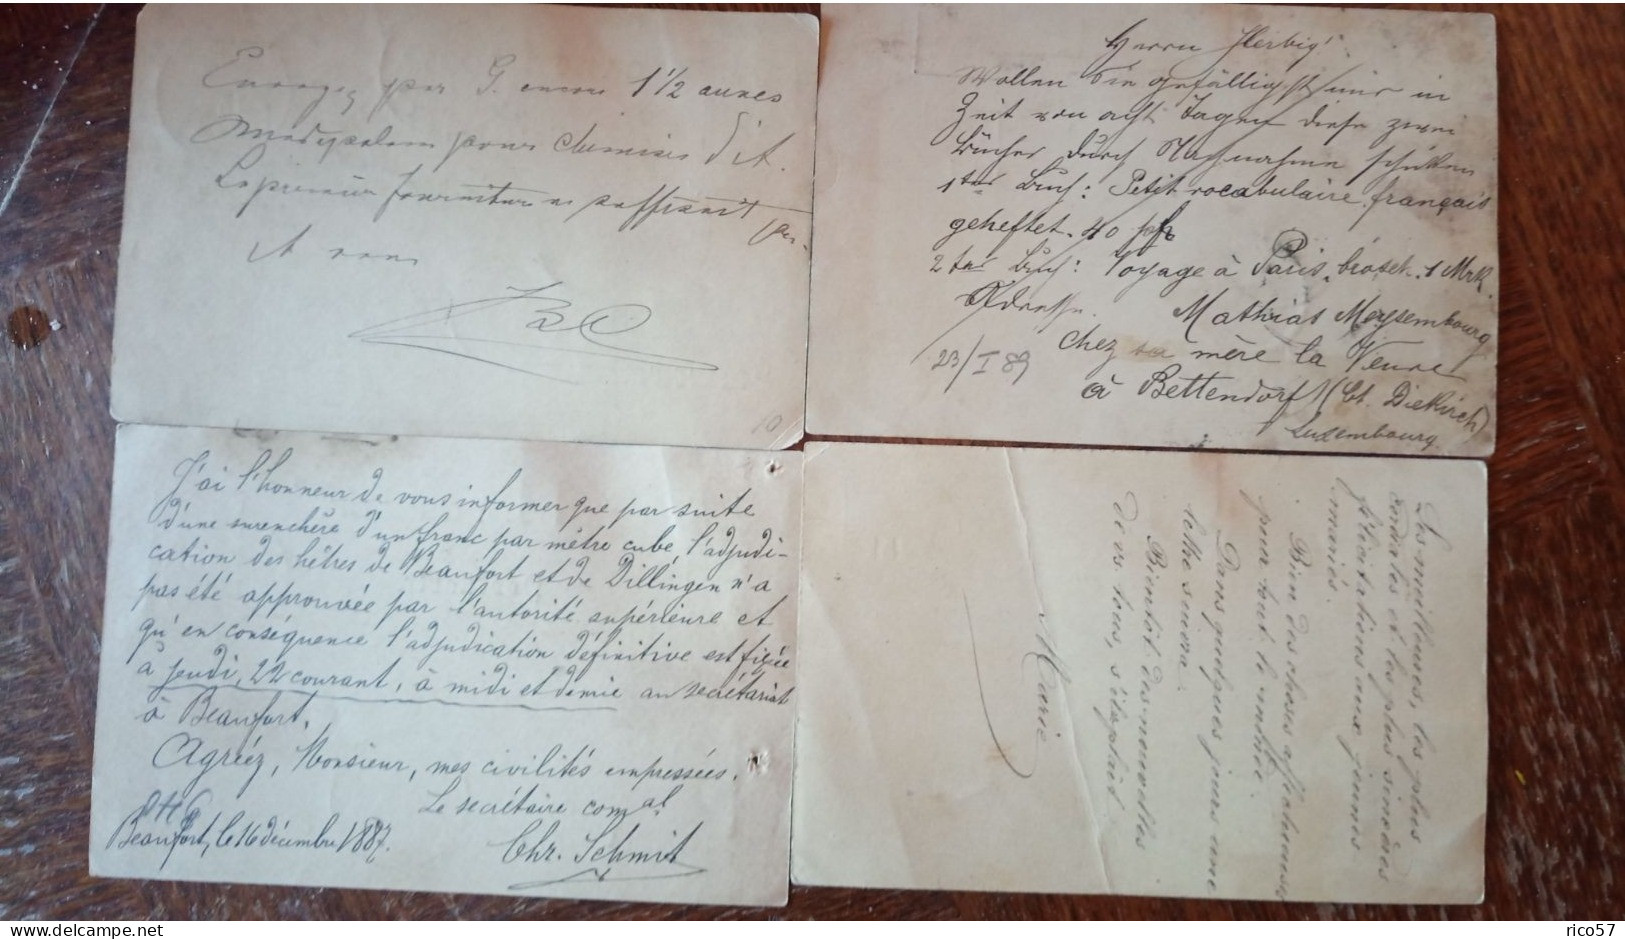 Envoyez par G. encore 1 1/2 aunes
pour chemises dit.
La première fourniture ne suffisait
pas.
A vous
Herrn Herbig!
Wollen Sie gefälligst mir in
Zeit von acht Tagen diese zwei
Bücher durch Nachnahme schicken
1tes Buch: Petit vocabulaire français
geheftet. 40 pf
2tes Buch: Voyage à Paris, brosch. 1 Mrk.
Adresse. Mathias Meysembourg
chez sa mère la Veuve
à Bettendorf (Ct. Diekirch)
Luxembourg
23/I 89
J'ai l'honneur de vous informer que par suite
d'une surenchère d'un franc par mètre cube, l'adjudi-
cation des hêtres de Beaufort et de Dillingen n'a
pas été approuvée par l'autorité supérieure et
qu'en conséquence l'adjudication définitive est fixée
a jeudi, 22 courant, à midi et demie au secrétariat
à Beaufort.
Agréez, Monsieur, mes civilités empressées.
Le secrétaire comal
Beaufort, le 16 décembre 1887.
Chr. Schmit
Les meilleures, les plus
cordiales et les plus sincères
félicitations aux jeunes
mariés.
Bien des choses affectueuses
pour tout le monde.
Dans quelques jours une
lettre suivra.
Bientôt des nouvelles
de vous tous, s'il plaît
Marie
delcampe.net
rico57